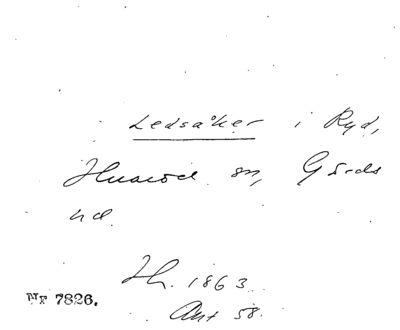 Ledsåker i Ryd,
Huaröd sn, Gärds
hd.
Th. 1863
Ant 58.
Nr 7826.